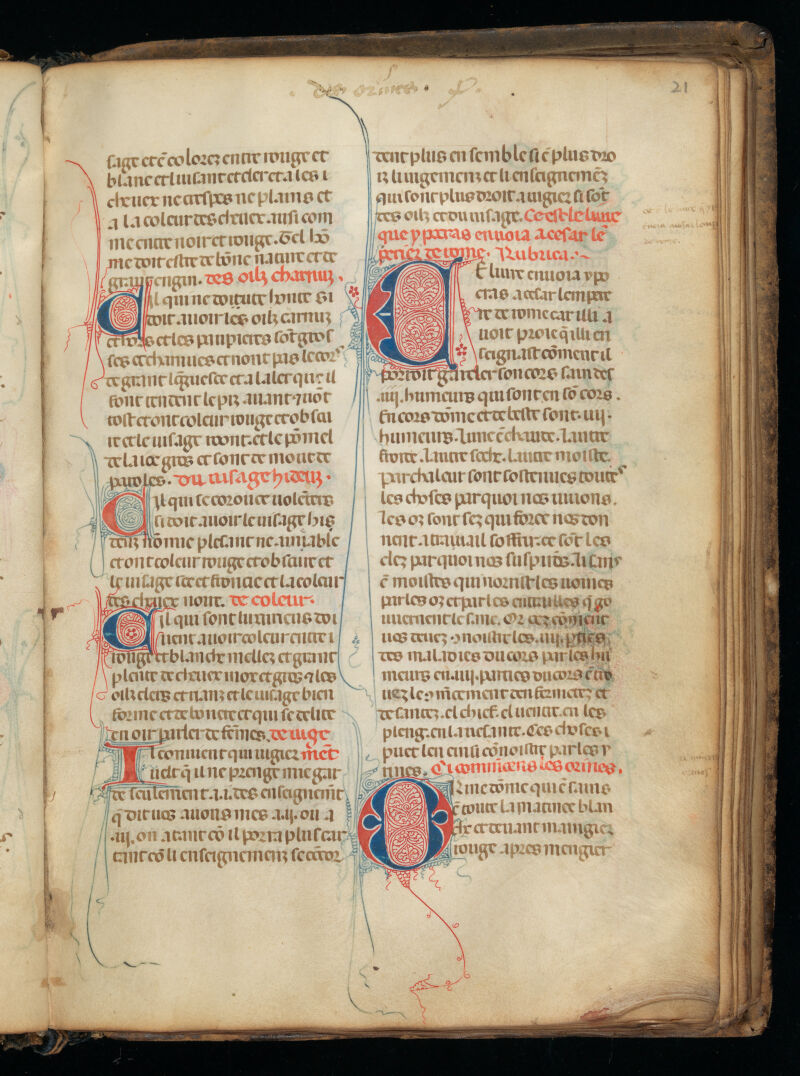 des orines.
21
sage et ē colorez entre rouge et
blanc et luisant et cler et a les i
cheuex ne crespes ne plains et
a la coleur des cheuex ausi com
me entre noir et rouge. Tel hō
me doit estre de bone nature et de
grant engin. des oilz charnuz.
Cil qui ne doitute honte si
doit auoir les oilz carnuz
et hors et les paupieres sōt gros
ses et charnues et nont pas le cors
de grant lōguesce et a laler que il
font tendent le piz auant 7 uōt
tost et ont coleur rouge et obscu
re et le uisage roont. et le pōmel
de la ioe gros et sont de mout de
paroles. du uisage hideuz.
Cil qui se corouce uolētiers
si doit auoir le uisage his
deuz nōmie plesant ne amiable
et ont coleur rouge et obscure et
le uisage sec et froncie et la coleur
des cheuex noire. de coleur.
Cil qui sont luxurieus doi
uent auoir coleur entre i
rouge et blanche mellez et grant
plente de cheuex mor et gros 7 les
oilz clers et granz et le uisage bien
forme et de bonere et qui se delite
en oir parler de femes. de iuge
Il conuient qui iugier mēt
uelt q̄ il ne prenge mie gar
de seulement .i. i. des enseignemt
q̄ dit uos auons mes a .ij. ou a
.iij. ou a tant cō il porra plus car
tant cō li enseignemenz se ētor
dent plus en semble si ē plus dro
iz li iugemenz et li enseignemēz
qui sont plus droit a iugier si sōt
des oilz et du uisage. Ce est le liure
que ypocras enuoia a cesar lē
perier de rome. Rubrica.
Ce liure enuoia ypo
cras a cesar lempere
re de rome car illi a
uoit proie q̄ illi en
seignast cōment il
porroit garder son cors sain des
.iiij. humeurs qui sont en sō cors.
En cors dome et de beste sont .iiij.
humeurs. Lune ē chaude. Lautre
froide. Lautre seche. Lautre moiste.
Par chaleur sont sostenues toutes
les choses par quoi nos uiuons.
Les os sont sez qui force nos don
nent a trauail soffrir. ce sōt les
clez par quoi nos suspirōs. li sans
ē moistes qui norrist les uoines
par les os et par les entrailles q̄ go
uuernent le sanc. Or oez cōment
uos deuez 9noistre les .iiij. pties
des maladies du cors par les hu
meurs en .iiij. parties du cors ē tro
uez le 9mēcement den fermetez et
de santez. el chief. el uentre. en les
pleng. en la uesante. Ces choses i
puet len ensi cōnoistre par les v
rines. Ci commence les orines.
Orine dome qui ē sains
ē toute la matinee blan
che et deuant mangiez
rouge apres mengier